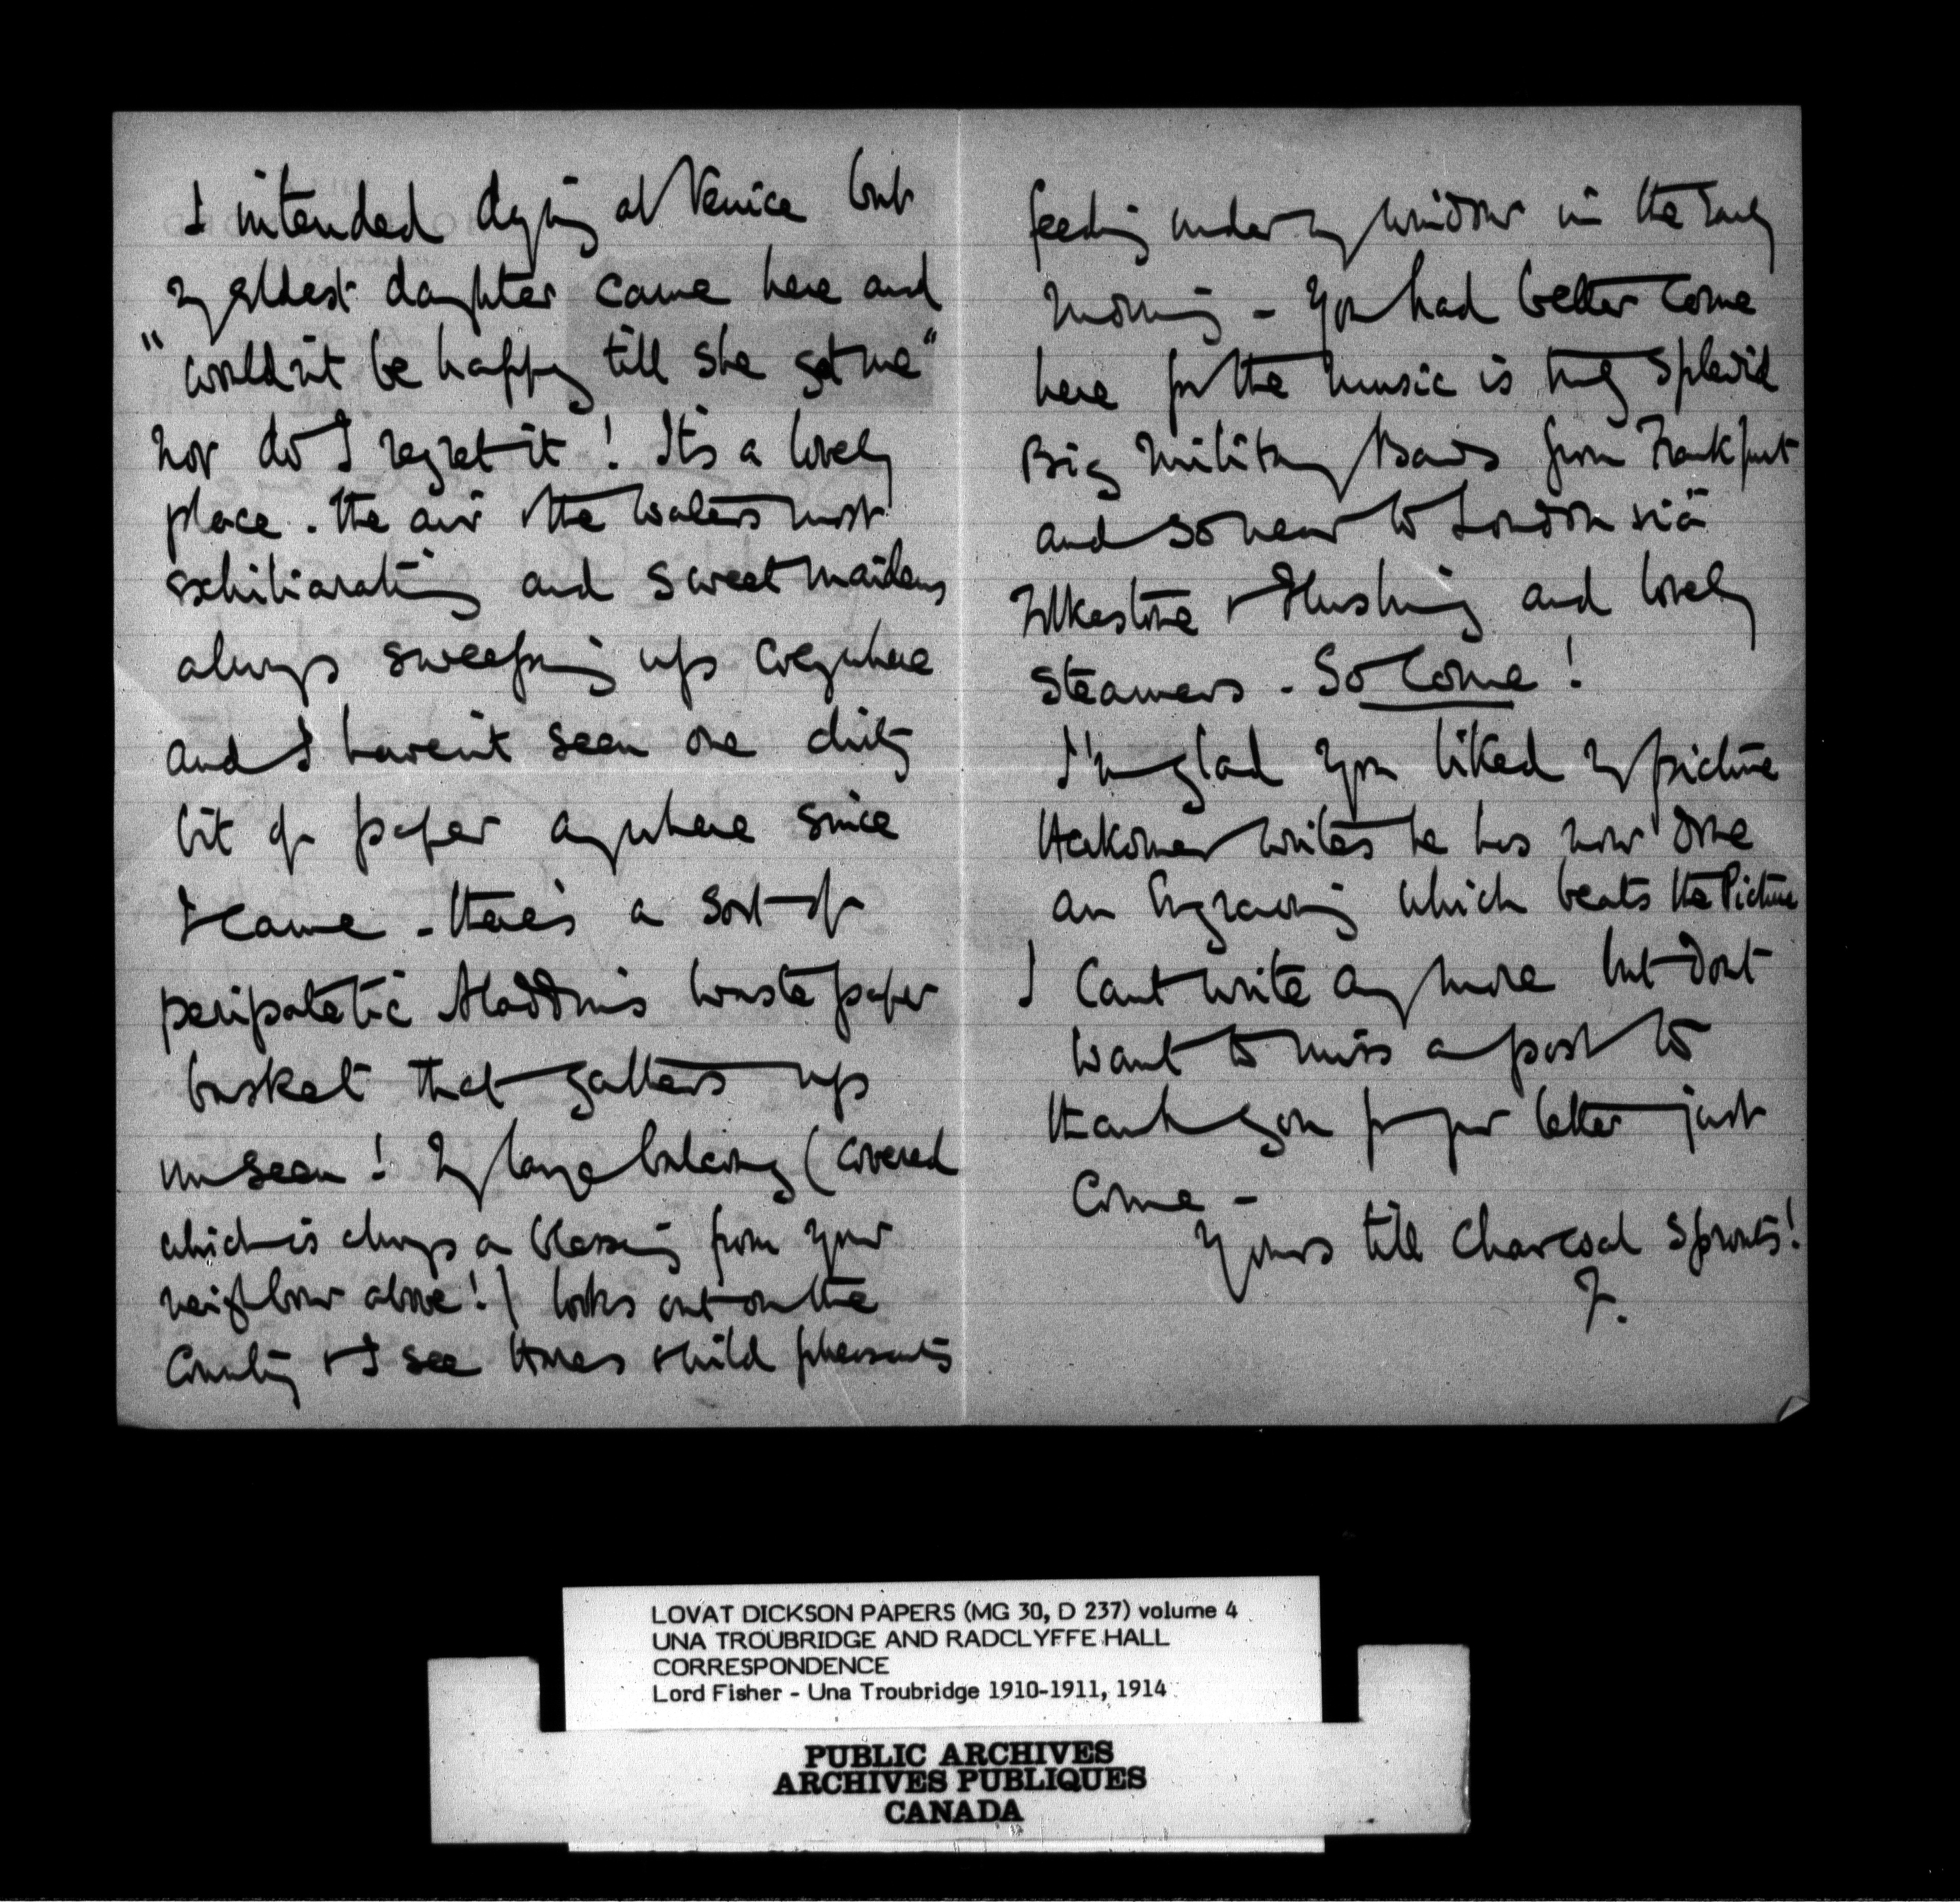 I intended dying at Venice but
my eldest daughter came here and
"wouldn't be happy till she got me"
nor do I regret it! It's a lovely
place. The air & the waters most
exhiliarating and sweet maidens
always sweeping up everywhere
and I haven't seen one dirty
bit of paper anywhere since
I came - there's a sort of
peripatetic Aladdin's waste paper
basket that gathers up
unseen! My large balcony (covered
which is always a blessing from your
neighbour above!) looks out on the
Country & I see Hares & wild pheasants
feeding under my window in the early
morning - You had better come
here for the music is truly splendid
Big Military Bands from Frankfurt
and so near to London viâ
Folkestone & Flushing and lovely
steamers - So Come!
I'm glad you liked my picture
Herkomer writes he has now done
an Engraving which beats the Picture
I Cant write any more but dont
want to miss a post to
thank you for your letter just
come -
Yours till Charcoal Sprouts!
F.
LOVAT DICKSON PAPERS (MG 30, D 237) volume 4
UNA TROUBRIDGE AND RADCLYFFE HALL
CORRESPONDENCE
Lord Fisher - Una Troubridge 1910-1911, 1914
PUBLIC ARCHIVES
ARCHIVES PUBLIQUES
CANADA